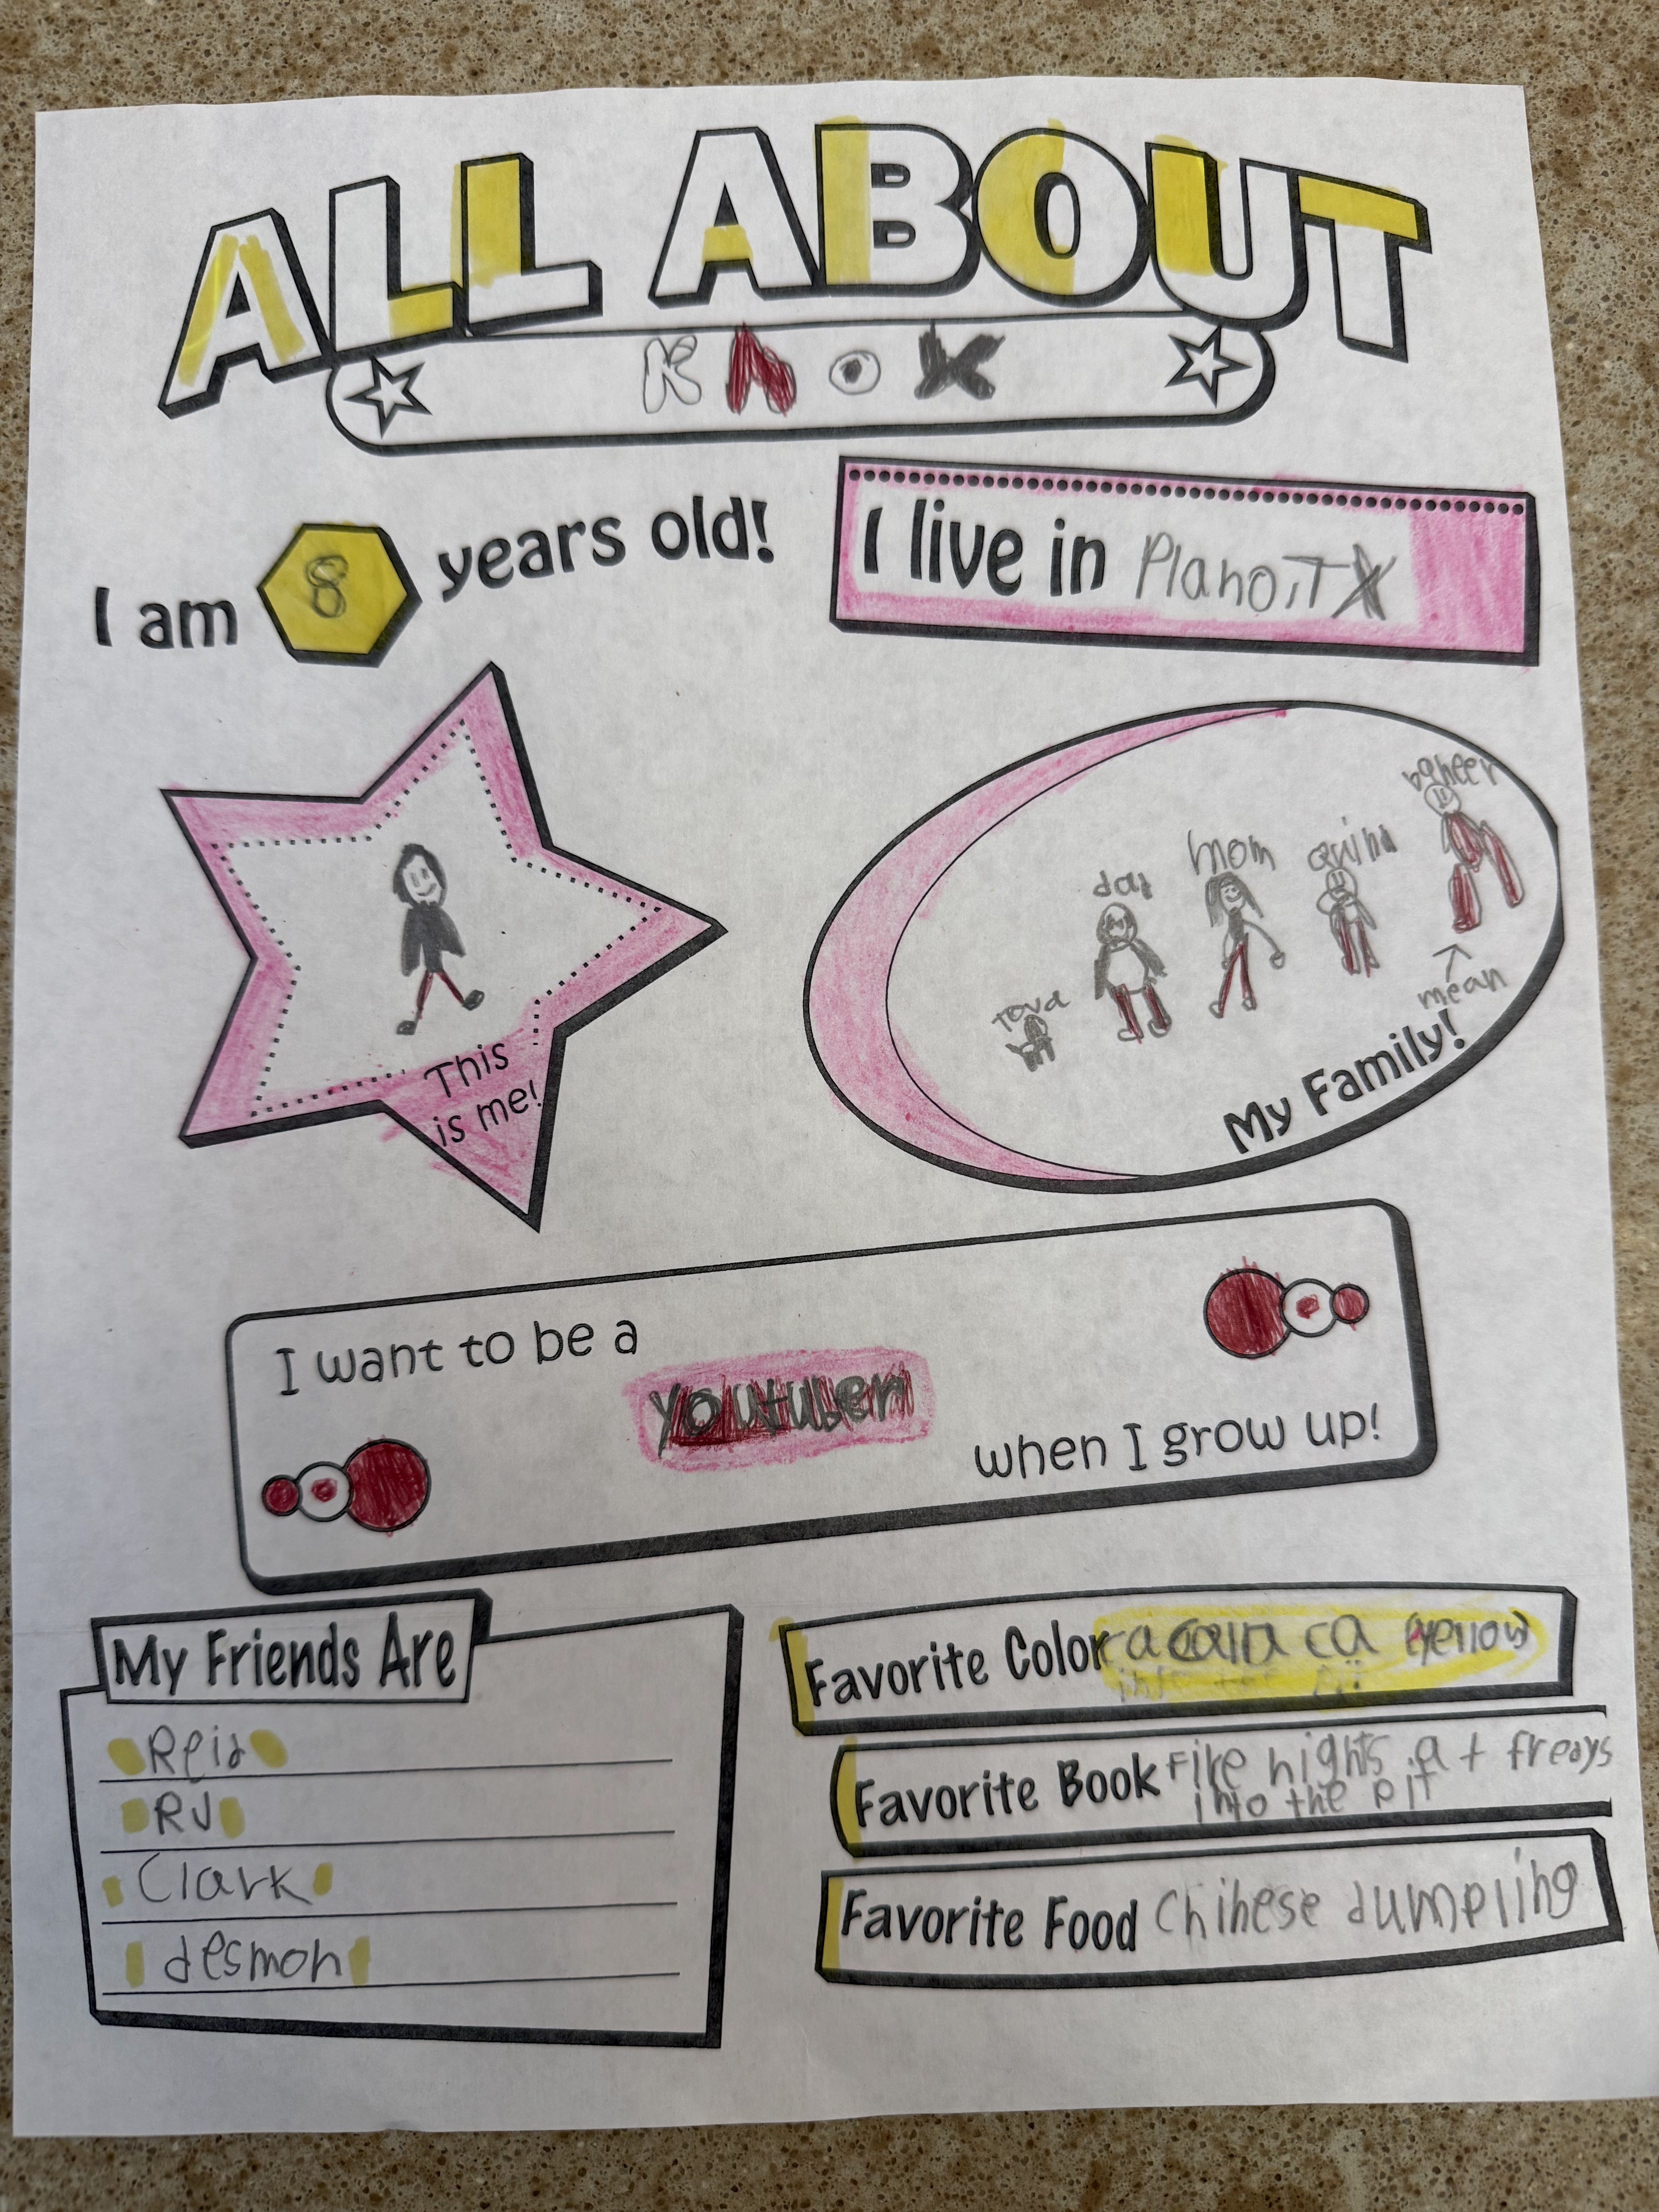 ALL ABOUT
KNOX
I am 8 years old!
I live in Plano, TX
This
is me!
bgheer
mom
quinn
dad
tova
mean
My Family!
I want to be a
youtuber
when I grow up!
My Friends Are
Reid
RJ
Clark
desmon
Favorite Color (yellow)
Favorite Book Five nights at freays
into the pit
Favorite Food Chinese dumpling